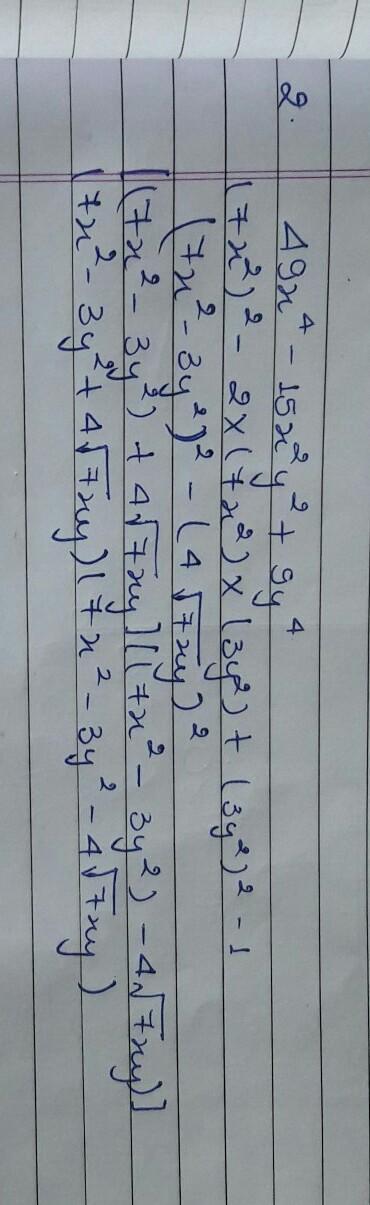 2. 49x⁴ - 15x²y² + 9y⁴
(7x²)² - 2×(7x²)×(3y²) + (3y²)² - 1
(7x² - 3y²)² - (4√7xy)²
[(7x² - 3y²) + 4√7xy][(7x² - 3y²) - 4√7xy)]
(7x² - 3y² + 4√7xy)(7x² - 3y² - 4√7xy)